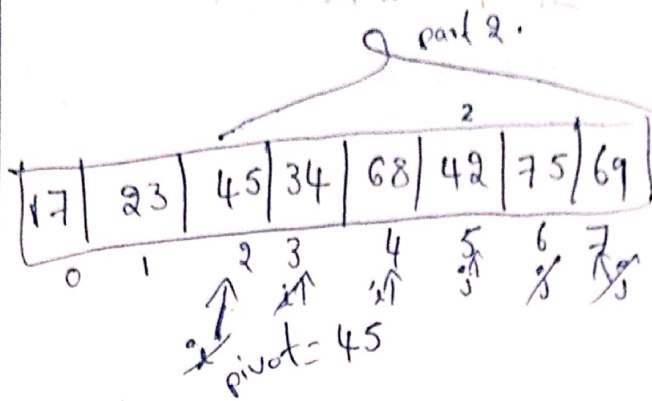 part 2.
2
17 | 23 | 45 | 34 | 68 | 42 | 75 | 69
0 1 2 3 4 5 6 7
i i i j j j
pivot = 45